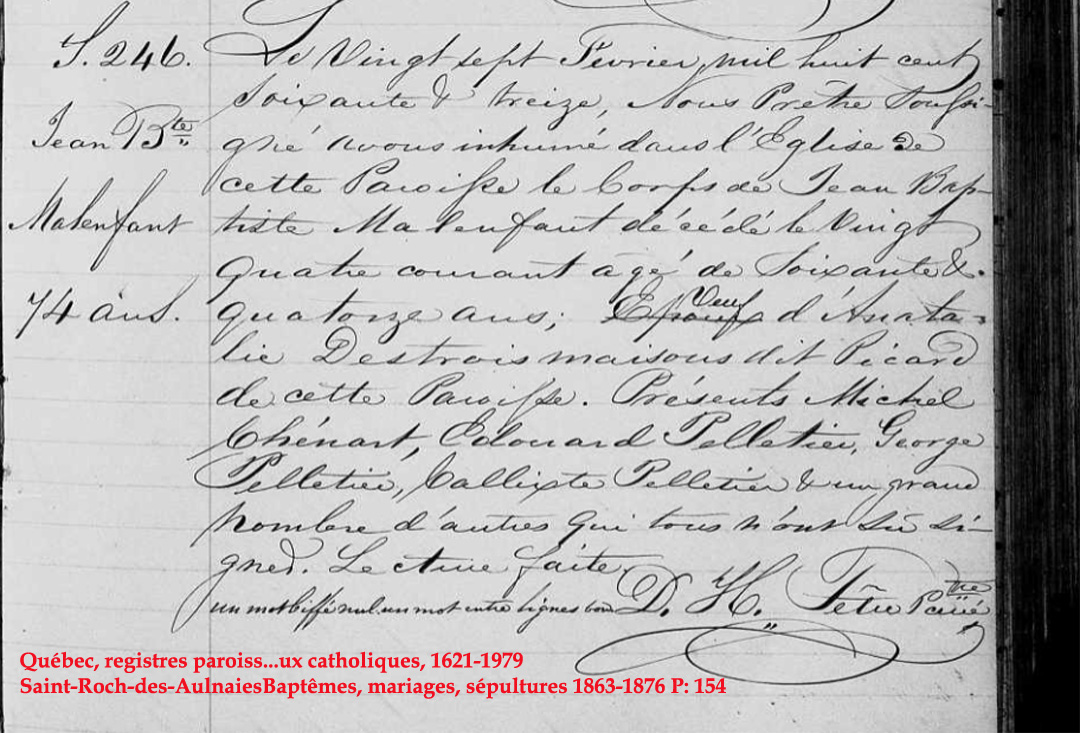 S. 246.
Jean Bte
Malenfant
74 ans.
Le Vingt sept Février, mil huit cent
soixante & treize, Nous Prêtre soussi-
gné avons inhumé dans l'Eglise de
cette Paroisse le Corps de Jean Bap-
tiste Malenfant décédé le Vingt
quatre courant agé de soixante &
quatorze ans; Epoux Veuf d'Anata-
lie Destroismaisons dit Picard
de cette Paroisse. Présents Michel
Chénart, Edouard Pelletier, George
Pelletier, Callixte Pelletier & un grand
nombre d'autres qui tous n'ont su si-
gner. Lecture faite.
un mot biffé nul. un mot entre lignes bon D. H. Têtu Ptre
Québec, registres paroiss...ux catholiques, 1621-1979
Saint-Roch-des-AulnaiesBaptêmes, mariages, sépultures 1863-1876 P: 154